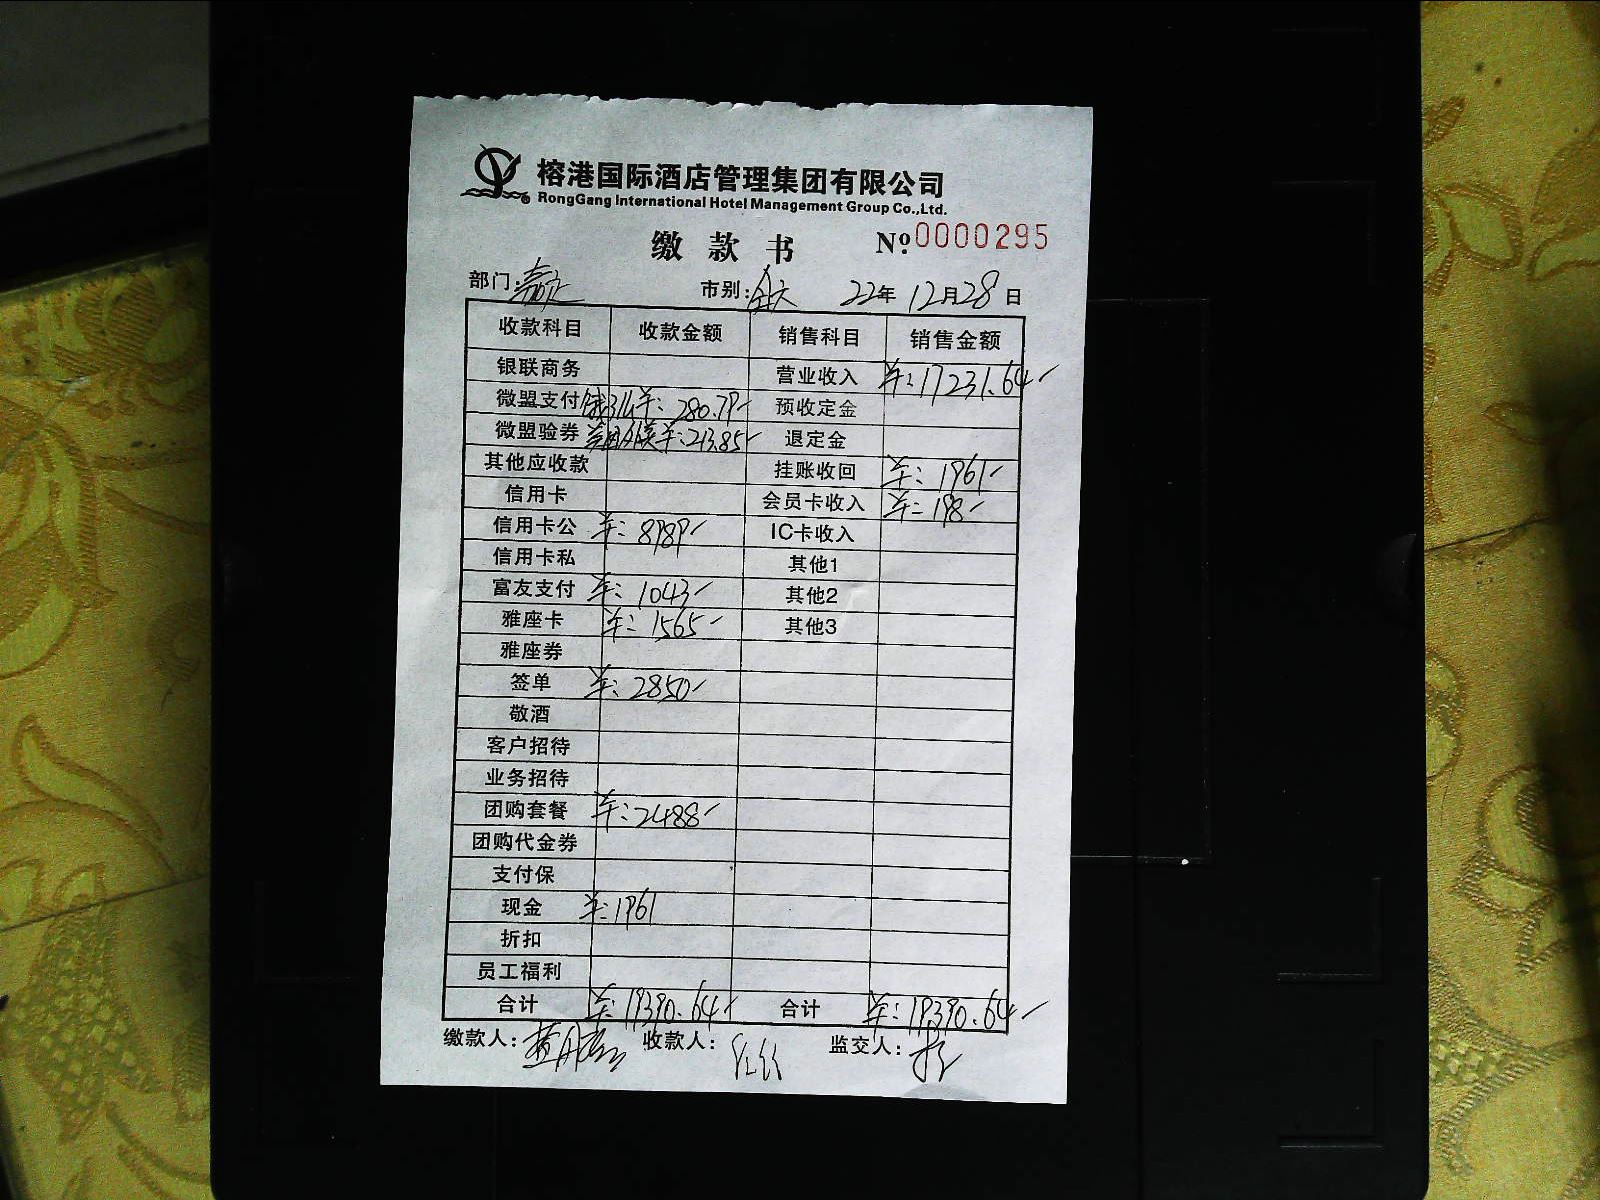 榕港国际酒店管理集团有限公司
RongGang International Hotel Management Group Co.,Ltd.
缴款书 №0000295
部门: 市别:全天 22年12月28日
收款科目 收款金额 销售科目 销售金额
银联商务 营业收入 ¥:17231.64
微盟支付 饿了么 ¥:280.79 预收定金
微盟验券 美团外卖 ¥:213.85 退定金
其他应收款 挂账收回 ¥:1961
信用卡 会员卡收入 ¥:198
信用卡公 ¥:8989 IC卡收入
信用卡私 其他1
富友支付 ¥:1043 其他2
雅座卡 ¥:1565 其他3
雅座券
签单 ¥:2850
敬酒
客户招待
业务招待
团购套餐 ¥:2488
团购代金券
支付保
现金 ¥:1961
折扣
员工福利
合计 ¥:19390.64 合计 ¥:19390.64
缴款人: 收款人: 监交人: